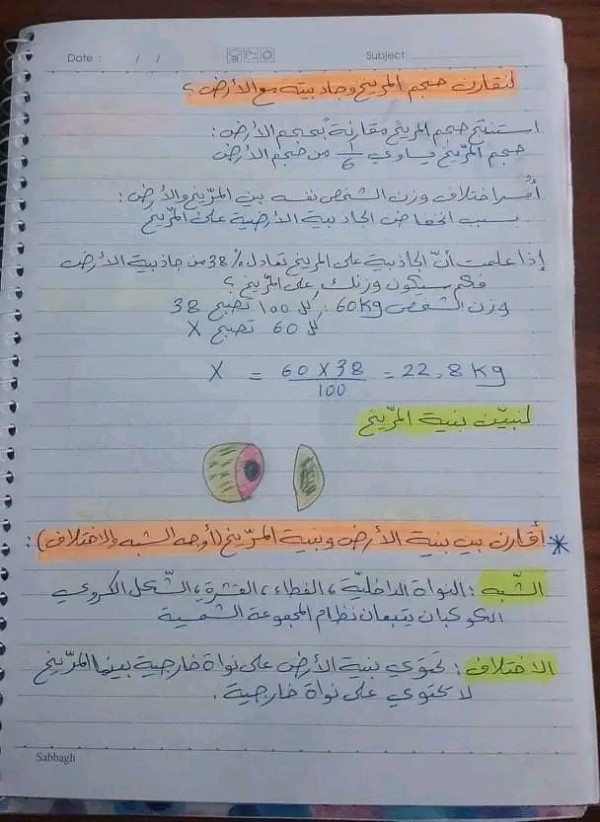 Date : / / Subject:
لنقارن حجم المريخ وجاذبيته مع الأرض ؟
استنتج حجم المريخ مقارنة بحجم الأرض :
حجم المرّيخ يساوي 1/6 من حجم الأرض
أفسر اختلاف وزن الشخص نفسه بين المرّيخ والأرض :
بسبب انخفاض الجاذبية الأرضية على المرّيخ
إذا علمت أنّ الجاذبية على المريخ تعادل 38% من جاذبية الأرض
فكم سيكون وزنك على المرّيخ ؟
وزن الشخص 60kg : كل 100 تصبح 38
كل 60 تصبح X
X = 60 X 38 / 100 = 22,8 kg
لنبيّن بنية المرّيخ
* أقارن بين بنية الأرض وبنية المرّيخ (أوجه الشبه والاختلاف) :
الشّبه : النواة الداخليّة ، الغطاء ، القشرة ، الشّكل الكروي
الكوكبان يتبعان نظام المجموعة الشمسية
الاختلاف : تحتوي بنية الأرض على نواة خارجية بينما المرّيخ
لا تحتوي على نواة خارجية .
Sabbagh